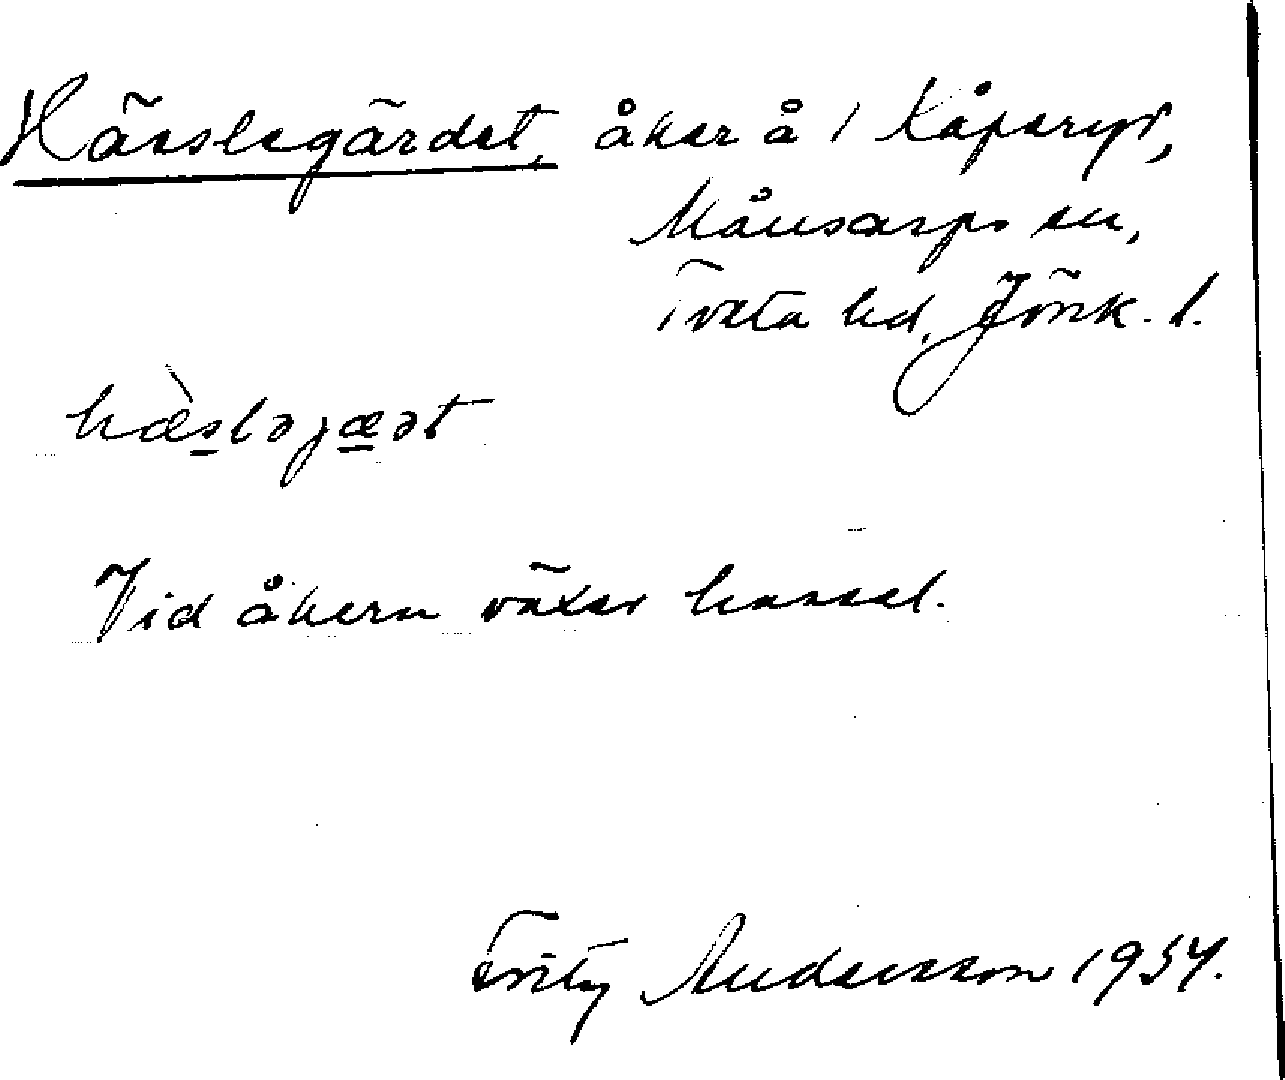 Hässlegärdet, åker å 1 Kåperyd,
Månsarps sn,
Tveta hd, Jönk. l.
hæ̀sləjæət
Vid åkern växer hassel.
Fritz Andersson 1934.